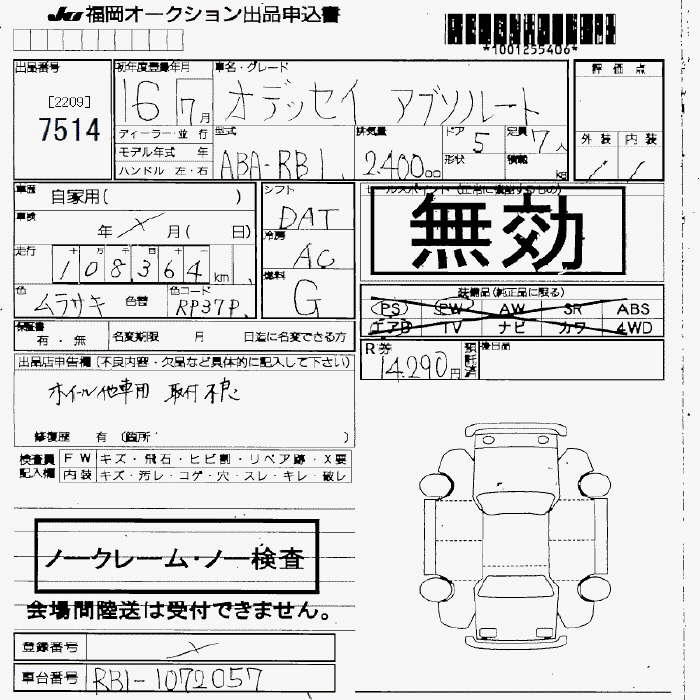 JU 福岡オークション出品申込書
*1001255406*
出品番号 [2209] 7514
初年度登録年月 16 7月
車名・グレード オデッセイ アブソルート
評価点
外装 内装
ディーラー・並行
モデル年式 年
ハンドル 左・右
型式 ABA-RB1
排気量 2.400cc
ドア 5
形状
定員 7人
積載 kg
車歴 自家用( )
車検 年 月( 日)
走行 十万千百十 108,364km
色 ムラサキ 色替 色コード RP37P
シフト DAT
冷房 AC
燃料 G
セールスポイント(正常に機能するもの)
無効
装備品(純正品に限る)
PS PW AW SR ABS
エアB TV ナビ カワ 4WD
保証書 有・無 名変期限 月 日迄に名変できる方
R券 14,290円 預託済
後日品
出品店申告欄(不良内容・欠品など具体的に記入して下さい)
ホイール他車用 取付不良
修復歴 有 (箇所 )
検査員記入欄
FW キズ・飛石・ヒビ割・リペア跡・X要
内装 キズ・汚レ・コゲ・穴・スレ・キレ・破レ
ノークレーム・ノー検査
会場間陸送は受付できません。
登録番号
車台番号 RB1-1072057